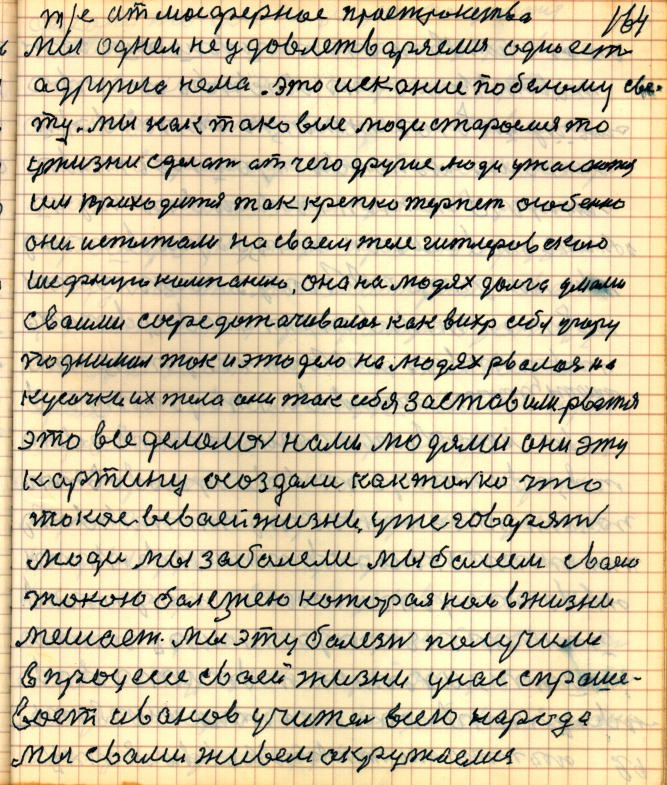 т/е атмосферное прострокства 164
мы однем не удовлетваряемся одно ест
адругога нема. это искание по белому све-
ту. мы как таковые люди стараемся то
в жизни сделат от чего другие люди ужасаются
им приходится так крепко терпет особенно
они испытали на сваем теле гитлеровскою
кампанию, она на людях долга
сваими сосредотачивалас как вихр себя
поднимал ток и это дело на людях рвалас на
кусочки их тела они так себя заставили рватся
это все делалос нами людями они эту
картину осоздали как толко что
токое веваей жизни, уже говарят
люди мы забалели мы балеем сваею
токою балезнею которая нам вжизни
мешает. мы эту балезн получили
впроцесе сваей жизни унас спраше-
вает иванов учител всего народа
мы свами живем окружаемся